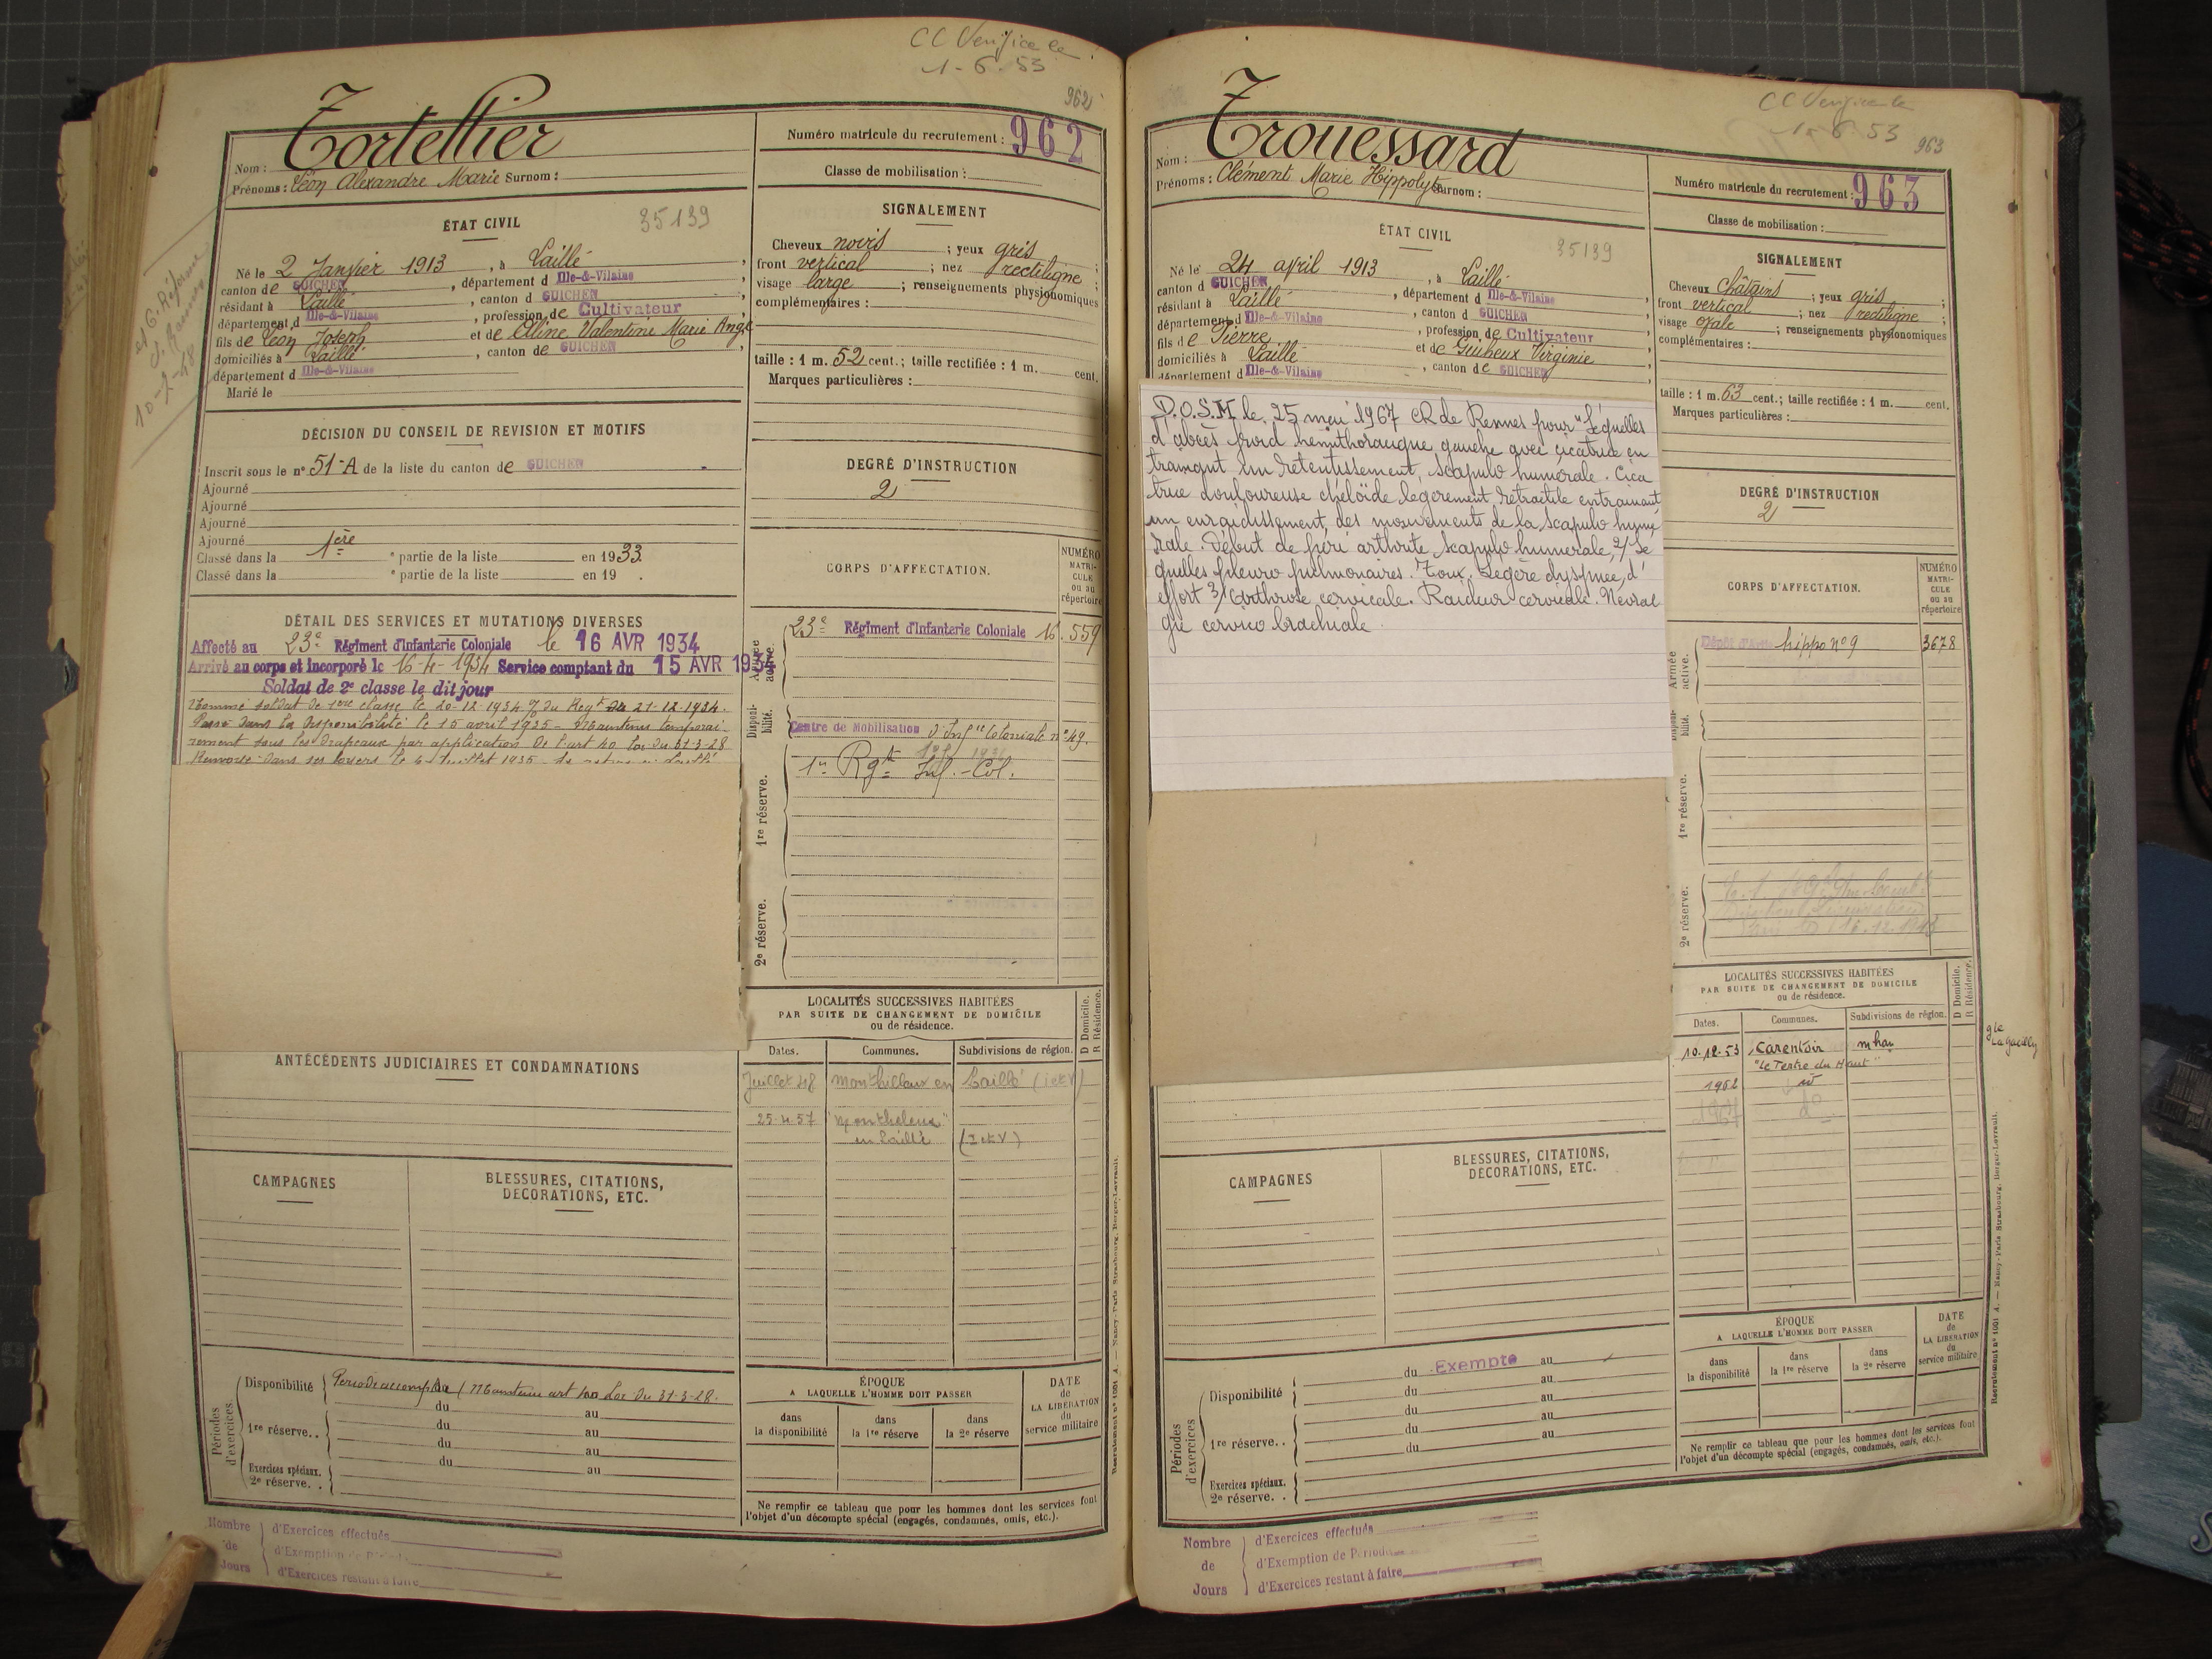 CC Verifice le
1-6-53
962
Tortellier
Nom :
Prénoms : Léon Alexandre Marie Surnom :
Numéro matricule du recrutement : 962
Classe de mobilisation :
ÉTAT CIVIL
35139
Né le 2 Janvier 1913, à Laillé,
canton de GUICHEN, département d Ille-&-Vilaine,
résidant à Laillé, canton d GUICHEN,
département d Ille-&-Vilaine, profession de Cultivateur
fils de Léon Joseph et de Olline Valentine Marie Ange
domiciliés à Laillé, canton de GUICHEN,
département d Ille-&-Vilaine
Marié le
et C. Réforme
10-2-48
SIGNALEMENT
Cheveux noirs ; yeux gris ;
front vertical ; nez rectiligne ;
visage large ; renseignements physionomiques
complémentaires :
taille : 1 m. 52 cent. ; taille rectifiée : 1 m. cent.
Marques particulières :
DÉCISION DU CONSEIL DE REVISION ET MOTIFS
Inscrit sous le n° 51-A de la liste du canton de GUICHEN
Ajourné
Ajourné
Ajourné
Ajourné
Classé dans la 1ère e partie de la liste en 1933.
Classé dans la e partie de la liste en 19 .
DEGRÉ D'INSTRUCTION
2
CORPS D'AFFECTATION.
NUMÉRO
MATRI-
CULE
ou au
répertoire
DÉTAIL DES SERVICES ET MUTATIONS DIVERSES
Affecté au 23e Régiment d'Infanterie Coloniale le 16 AVR 1934
Arrivé au corps et incorporé le 16-4-1934 Service comptant du 15 AVR 1934
Soldat de 2e classe le dit jour
Nommé soldat de 1ère classe le 20-12-1934 du Regt du 21-12-1934.
Passé dans la disponibilité le 15 avril 1935 - Maintenu temporai-
rement sous les drapeaux par application de l'art 40 loi du 31-3-28
Renvoyé dans ses foyers le 6 Juillet 1935
Armée
active.
23e Régiment d'Infanterie Coloniale 16. 559
Disponi-
bilité.
Centre de Mobilisation d'Infrie Coloniale n° 49.
1re réserve.
1er Rgt Inf.-Col.
2e réserve.
LOCALITÉS SUCCESSIVES HABITÉES
PAR SUITE DE CHANGEMENT DE DOMICILE
ou de résidence.
D Domicile.
R Résidence.
Dates.
Communes.
Subdivisions de région.
Juillet 48 Monthilleux en Laillé (I et V)
25-4-57 "Montheleux"
en Laillé (I et V)
ANTÉCÉDENTS JUDICIAIRES ET CONDAMNATIONS
CAMPAGNES
BLESSURES, CITATIONS,
DÉCORATIONS, ETC.
Périodes
d'exercices.
Disponibilité Période accomplie (Maintenu art 40 Loi du 31-3-28.
du au
1re réserve. . du au
du au
du au
Exercices spéciaux.
2e réserve. .
ÉPOQUE
A LAQUELLE L'HOMME DOIT PASSER
dans
la disponibilité
dans
la 1re réserve
dans
la 2e réserve
DATE
de
LA LIBÉRATION
du
service militaire
Ne remplir ce tableau que pour les hommes dont les services font
l'objet d'un décompte spécial (engagés, condamnés, omis, etc.).
Nombre
de
Jours
d'Exercices effectués
d'Exemption de Période
d'Exercices restant à faire
Recrutement n° 1001 A. — Nancy-Paris-Strasbourg, Berger-Levrault.
CC Verifice le
1-6-53
963
Trouessard
Nom :
Prénoms : Clément Marie Hippolyte Surnom :
Numéro matricule du recrutement : 963
Classe de mobilisation :
ÉTAT CIVIL
35139
Né le 24 avril 1913, à Laillé
canton d GUICHEN, département d Ille-&-Vilaine,
résidant à Laillé, canton d GUICHEN,
département d Ille-&-Vilaine, profession de Cultivateur
fils de Pierre et de Guiheux Virginie
domiciliés à Laillé, canton de GUICHEN,
département d Ille-&-Vilaine
SIGNALEMENT
Cheveux châtains ; yeux gris ;
front vertical ; nez rectiligne ;
visage ovale ; renseignements physionomiques
complémentaires :
taille : 1 m. 63 cent. ; taille rectifiée : 1 m. cent.
Marques particulières :
P.O.S.M le 25 mai 1967 CR de Rennes pour "Séquelles
d'abcès froid hémithoracique gauche avec cicatrice en
trainant un retentissement, scapulo humérale. Cica
trice douloureuse chéloïde légèrement rétractile entrainant
un enraidissement des mouvements de la scapulo humé
rale. Début de péri arthrite scapulo humérale 2/ Sé
quelles pleuro pulmonaires. Toux. Légère dyspnée d'
effort 3/ Corthrose cervicale. Raideur cervicale. Névral
gie cervico brachiale.
DEGRÉ D'INSTRUCTION
2
CORPS D'AFFECTATION.
NUMÉRO
MATRI-
CULE
ou au
répertoire
Armée
active.
hippo n° 9 3678
Disponi-
bilité.
1re réserve.
2e réserve.
16.12.1943
LOCALITÉS SUCCESSIVES HABITÉES
PAR SUITE DE CHANGEMENT DE DOMICILE
ou de résidence.
D Domicile.
R Résidence.
Dates.
Communes.
Subdivisions de région.
10.12.53 Carentoir mhan
"Le Tertre du Haut"
1962 id
1967 do
gie
La Gacilly
CAMPAGNES
BLESSURES, CITATIONS,
DÉCORATIONS, ETC.
Périodes
d'exercices
Disponibilité du Exempté au
du au
du au
1re réserve. . du au
du au
Exercices spéciaux.
2e réserve. .
ÉPOQUE
A LAQUELLE L'HOMME DOIT PASSER
dans
la disponibilité
dans
la 1re réserve
dans
la 2e réserve
DATE
de
LA LIBÉRATION
du
service militaire
Ne remplir ce tableau que pour les hommes dont les services font
l'objet d'un décompte spécial (engagés, condamnés, omis, etc.).
Nombre
de
Jours
d'Exercices effectués
d'Exemption de Période
d'Exercices restant à faire
Recrutement n° 1001 A. — Nancy-Paris-Strasbourg, Berger-Levrault.